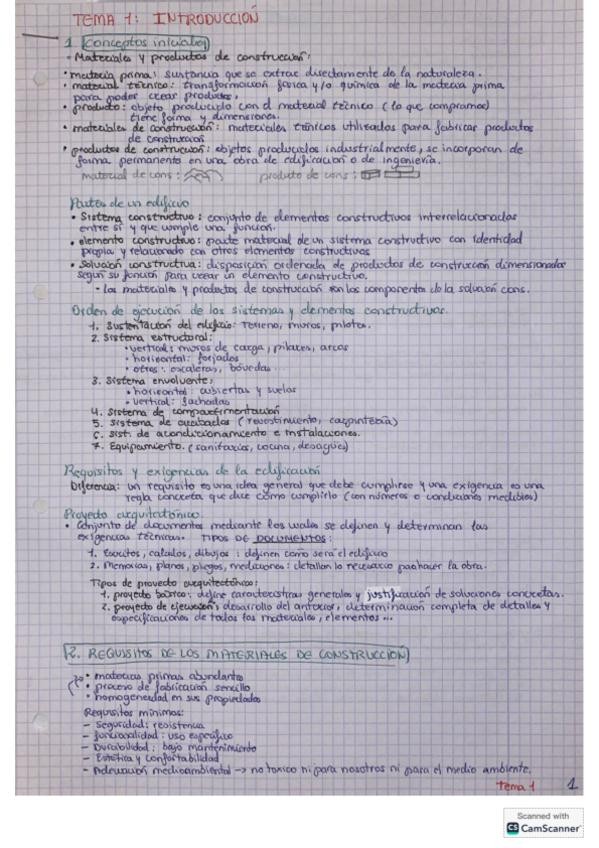 TEMA 1: INTRODUCCIÓN
1. Conceptos iniciales
- Materiales y productos de construcción:
• materia prima: sustancia que se extrae directamente de la naturaleza.
• material técnico: transformación física y/o química de la materia prima
para poder crear productos.
• producto: objeto producido con el material técnico (lo que compramos)
tiene forma y dimensiones.
• materiales de construcción: materiales técnicos utilizados para fabricar productos
de construcción
• productos de construcción: objetos producidos industrialmente, se incorporan de
forma permanente en una obra de edificación o de ingeniería.
material de cons: producto de cons:
Partes de un edificio
• Sistema constructivo: conjunto de elementos constructivos interrelacionados
entre sí y que cumple una función.
• elemento constructivo: parte material de un sistema constructivo con identidad
propia y relacionado con otros elementos constructivos
• Solución constructiva: disposición ordenada de productos de construcción dimensionados
según su función para crear un elemento constructivo.
• los materiales y productos de construcción son los componente de la solución cons.
Orden de ejecución de los sistemas y elementos constructivos.
1. Sustentación del edificio: Terreno, muros, pilotes.
2. Sistema estructural:
• vertical: muros de carga, pilares, arcos
• horizontal: forjados
• otros: escaleras, bóvedas...
3. Sistema envolvente:
• horizontal: cubiertas y suelos
• vertical: fachadas
4. Sistema de compartimentación
5. Sistema de acabados (revestimiento, carpintería)
6. Sist. de acondicionamiento e instalaciones.
7. Equipamiento. (sanitarios, cocina, desagüe)
Requisitos y exigencias de la edificación
Diferencia: un requisito es una idea general que debe cumplirse y una exigencia es una
regla concreta que dice cómo cumplirlo (con números o condiciones medibles)
Proyecto arquitectónico.
• Conjunto de documentos mediante los cuales se definen y determinan las
exigencias técnicas. TIPOS DE DOCUMENTOS:
1. Escritos, calculos, dibujos: definen como será el edificio
2. Memorias, planos, pliegos, mediciones: detallan lo necesario para hacer la obra.
Tipos de proyecto arquitectónico:
1. proyecto básico: define características generales y justificación de soluciones concretas.
2. proyecto de ejecución: desarrollo del anterior, determinación completa de detalles y
especificaciones de todos los materiales, elementos...
2. REQUISITOS DE LOS MATERIALES DE CONSTRUCCIÓN
• materias primas abundantes
• proceso de fabricación sencillo
• homogeneidad en sus propiedades
Requisitos mínimos:
- Seguridad: resistencia
- funcionalidad: uso específico
- Durabilidad: bajo mantenimiento
- Estética y confortabilidad
- Adecuación medioambiental → no toxico ni para nosotros ni para el medio ambiente.
Tema 1 1
Scanned with
CS CamScanner